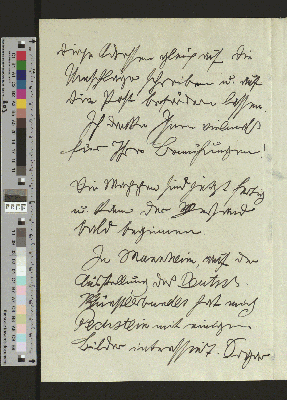 diese Adressen gleich auf die
Umschläge schreiben u. auf
die Post befördern lassen.
Ich danke Ihnen vielmals
für Ihre Bemühungen!
Die Mappen sind jetzt fertig
u. kann der Versand
bald beginnen.
In Mannheim, auf der
Ausstellung des Deutsch.
Künstlerbundes hat mich
Pechstein mit einigen
Bildern interessiert.